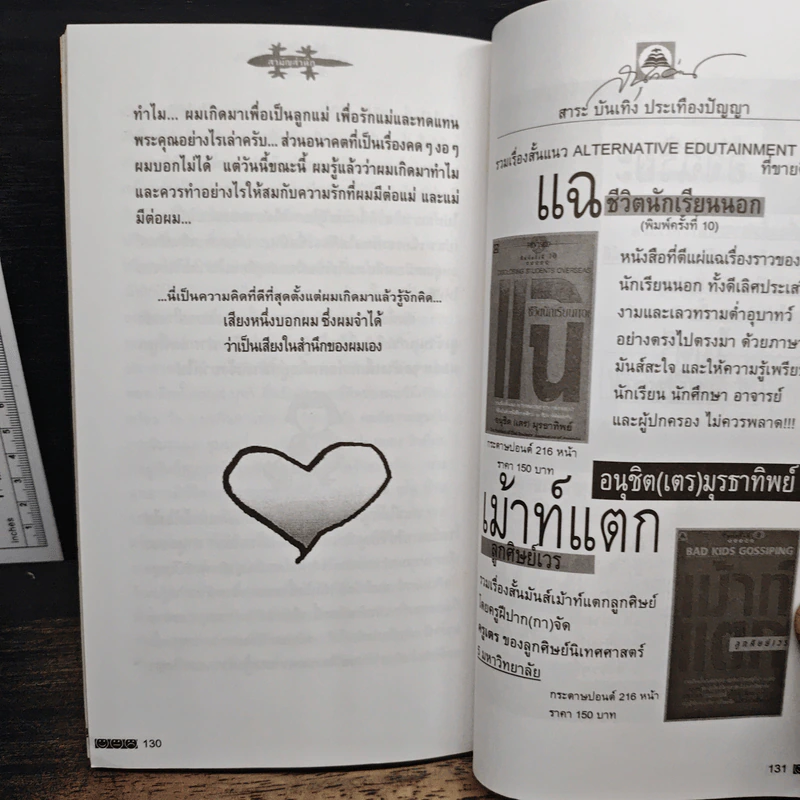 สามัญสำนึก
ทำไม... ผมเกิดมาเพื่อเป็นลูกแม่ เพื่อรักแม่และทดแทน
พระคุณอย่างไรเล่าครับ... ส่วนอนาคตที่เป็นเรื่องคด ๆ งอ ๆ
ผมบอกไม่ได้ แต่วันนี้ขณะนี้ ผมรู้แล้วว่าผมเกิดมาทำไม
และควรทำอย่างไรให้สมกับความรักที่ผมมีต่อแม่ และแม่
มีต่อผม...
...นี่เป็นความคิดที่ดีที่สุดตั้งแต่ผมเกิดมาแล้วรู้จักคิด...
เสียงหนึ่งบอกผม ซึ่งผมจำได้
ว่าเป็นเสียงในสำนึกของผมเอง
130
inches
1
2
3
4
5
6
สาระ บันเทิง ประเทืองปัญญา
รวมเรื่องสั้นแนว ALTERNATIVE EDUTAINMENT
ที่ขาย
แฉ ชีวิตนักเรียนนอก
(พิมพ์ครั้งที่ 10)
STUDENTS OVERSEAS
แฉ
ชีวิตนักเรียนนอก
อนุชิต (เตร) มุรธาทิพย์
หนังสือที่ตีแผ่แฉเรื่องราวของ
นักเรียนนอก ทั้งดีเลิศประเส
งามและเลวทรามต่ำอุบาทว์
อย่างตรงไปตรงมา ด้วยภาษา
มันส์สะใจ และให้ความรู้เพรีย
นักเรียน นักศึกษา อาจารย์
และผู้ปกครอง ไม่ควรพลาด!!!
กระดาษปอนด์ 216 หน้า
ราคา 150 บาท
อนุชิต(เตร)มุรธาทิพย์
เม้าท์แตก
ลูกศิษย์เวร
รวมเรื่องสั้นมันส์เม้าท์แตกลูกศิษย์
โดยครูฝีปาก(กา)จัด
ครูเตร ของลูกศิษย์นิเทศศาสตร์
5 มหาวิทยาลัย
กระดาษปอนด์ 216 หน้า
ราคา 150 บาท
BAD KIDS GOSSIPING
เม้าท์
แตก
ลูกศิษย์เวร
131